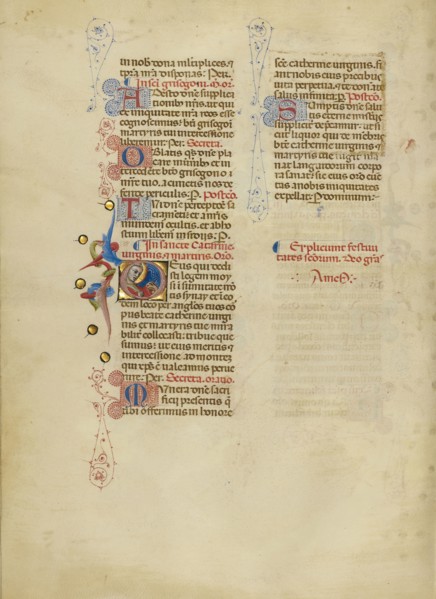 tu nob dona multiplices. et
tpra nra disponas. Per.
In sci grisogoni. m. or.
Adesto dne supplica
tionib nris. ut qui
ex iniquitate nra reos esse
cognoscimus. bti grisogoni
martyris tui intercessione
liberemur. Per. Secreta.
Oblatis qs dne pla
care munerib. et in
tercedente bto grisogono
mre tuo. a cunctis nos de
fende periculis. P. Postco.
Tui dne perceptione sa
cramenti et a nris
mundemur occultis. et ab ho
stium liberemur insidiis. P.
In sancte Catarine
virginis et martiris. Oro.
Deus qui dedi
sti legem moy
si i sumitate mo
tis synay et i eo
dem loco per anglos tuos co
pus beate catherine virgi
nis et martyris tue mira
bilit collocasti. tribue que
sumus. ut eius meritis et
intercessione ad montez
qui xps e valeamus perve
nire. Per. Secreta. oratio.
Munera dne sacri
ficii presentis q
tibi offerimus in honore
sce catherine virginis. fi
ant nobis eius precibus
vita perpetua. et credentibus
salus infinita. P. Postco.
Sumptis dne salu
tis eterne misteriis
suppliciter deprecamur. ut si
cut liquor qui de membris
bte catherine virginis et
martyris tue iugit ma
nat languidorum corpo
ra sanat. sic eius oro cunc
tas a nobis iniquitates
expellat. P. dominum.
Expliciunt festivi
tates sctorum. Deo gras
Amen.